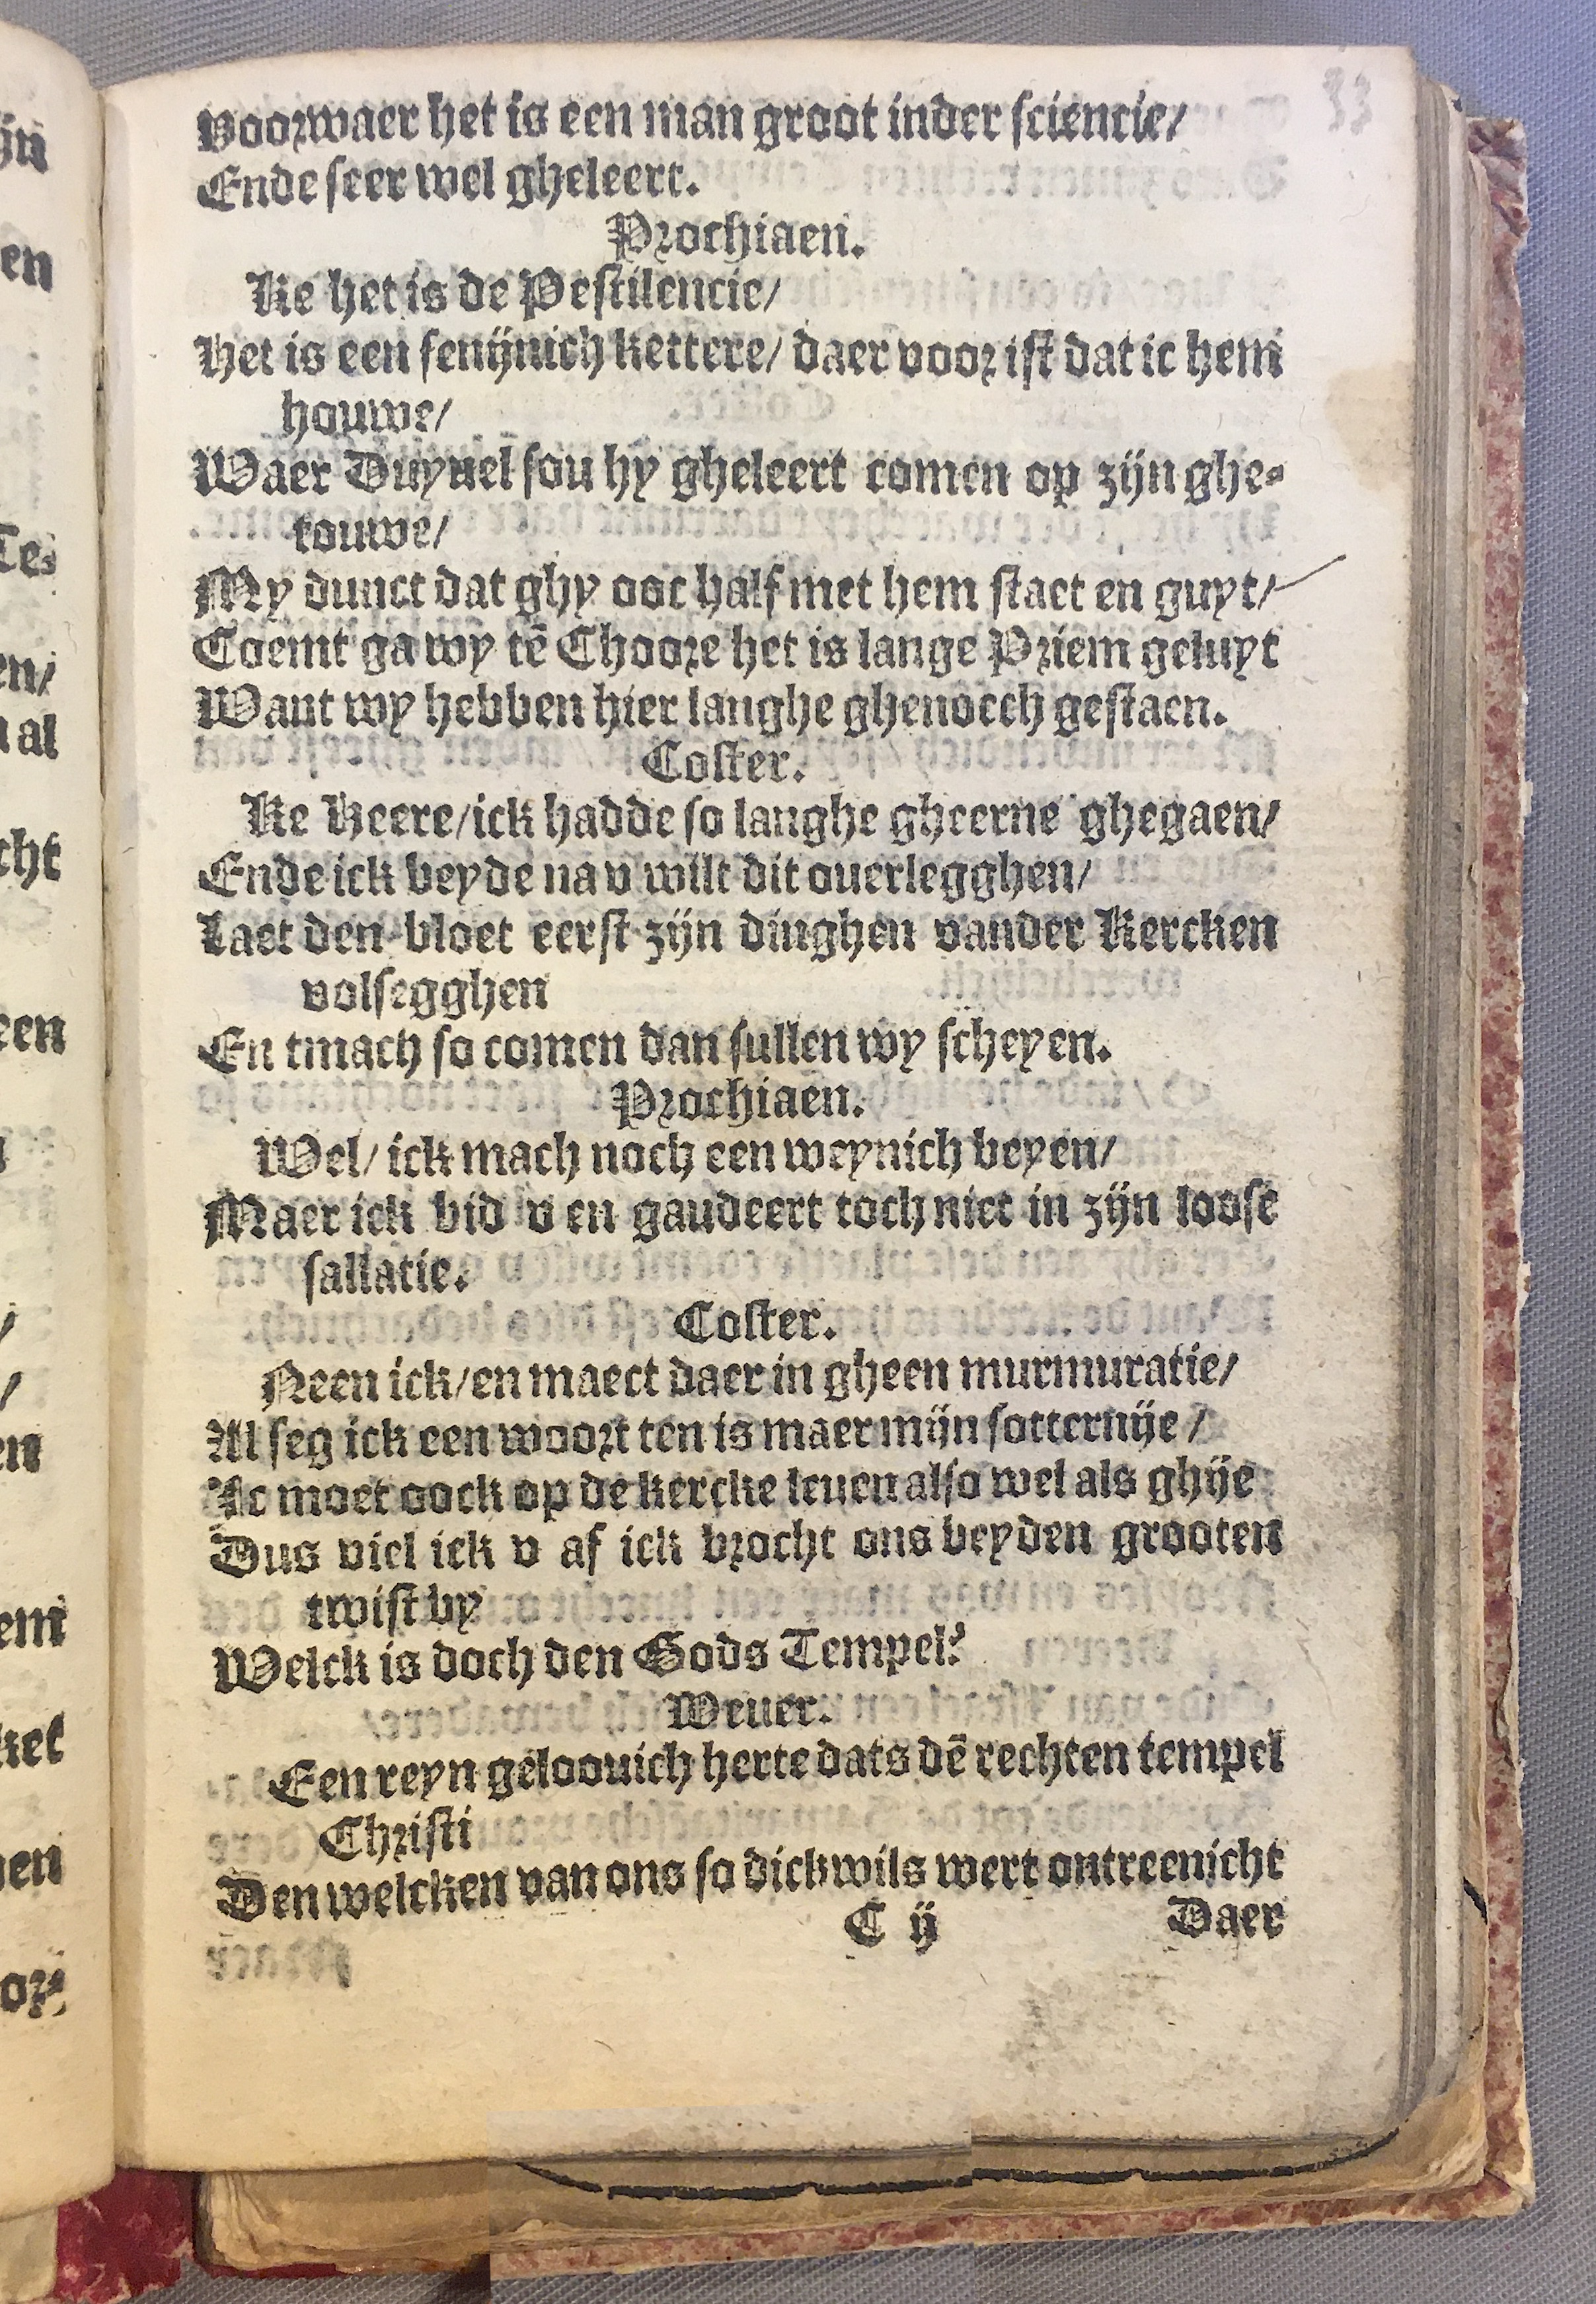 33
voorwaer het is een man groot inder sciencie/
Ende seer wel gheleert.
Prochiaen.
Ke het is de Pestilencie/
Het is een fenijnich kettere/ daer voor ist dat ic hem
houwe/
Waer Duyuel sou hy gheleert comen op zijn ghe-
touwe/
My dunct dat ghy ooc half met hem staet en guyt/
Coemt ga wy tē Choore het is lange Priem geluyt
Want wy hebben hier langhe ghenoech gestaen.
Coster.
Ke Heere/ick hadde so langhe gheerne ghegaen/
Ende ick beyde na v wilt dit ouerlegghen/
Laet den bloet eerst zijn dinghen vander Kercken
volsegghen
En tmach so comen dan sullen wy scheyen.
Prochiaen.
Wel/ ick mach noch een weynich beyen/
Maer ick bid v en gaudeert toch niet in zijn loose
fallatie.
Coster.
Neen ick/en maect daer in gheen murmuratie/
Al seg ick een woort ten is maer mijn sotternije/
Ic moet oock op de kercke leuen also wel als ghije
Dus viel ick v af ick brocht ons beyden grooten
twist by
Welck is doch den Gods Tempel?
Weuer.
Een reyn geloouich herte dats dē rechten tempel
Christi
Den welcken van ons so dickwils wert ontreenicht
C ij Daer